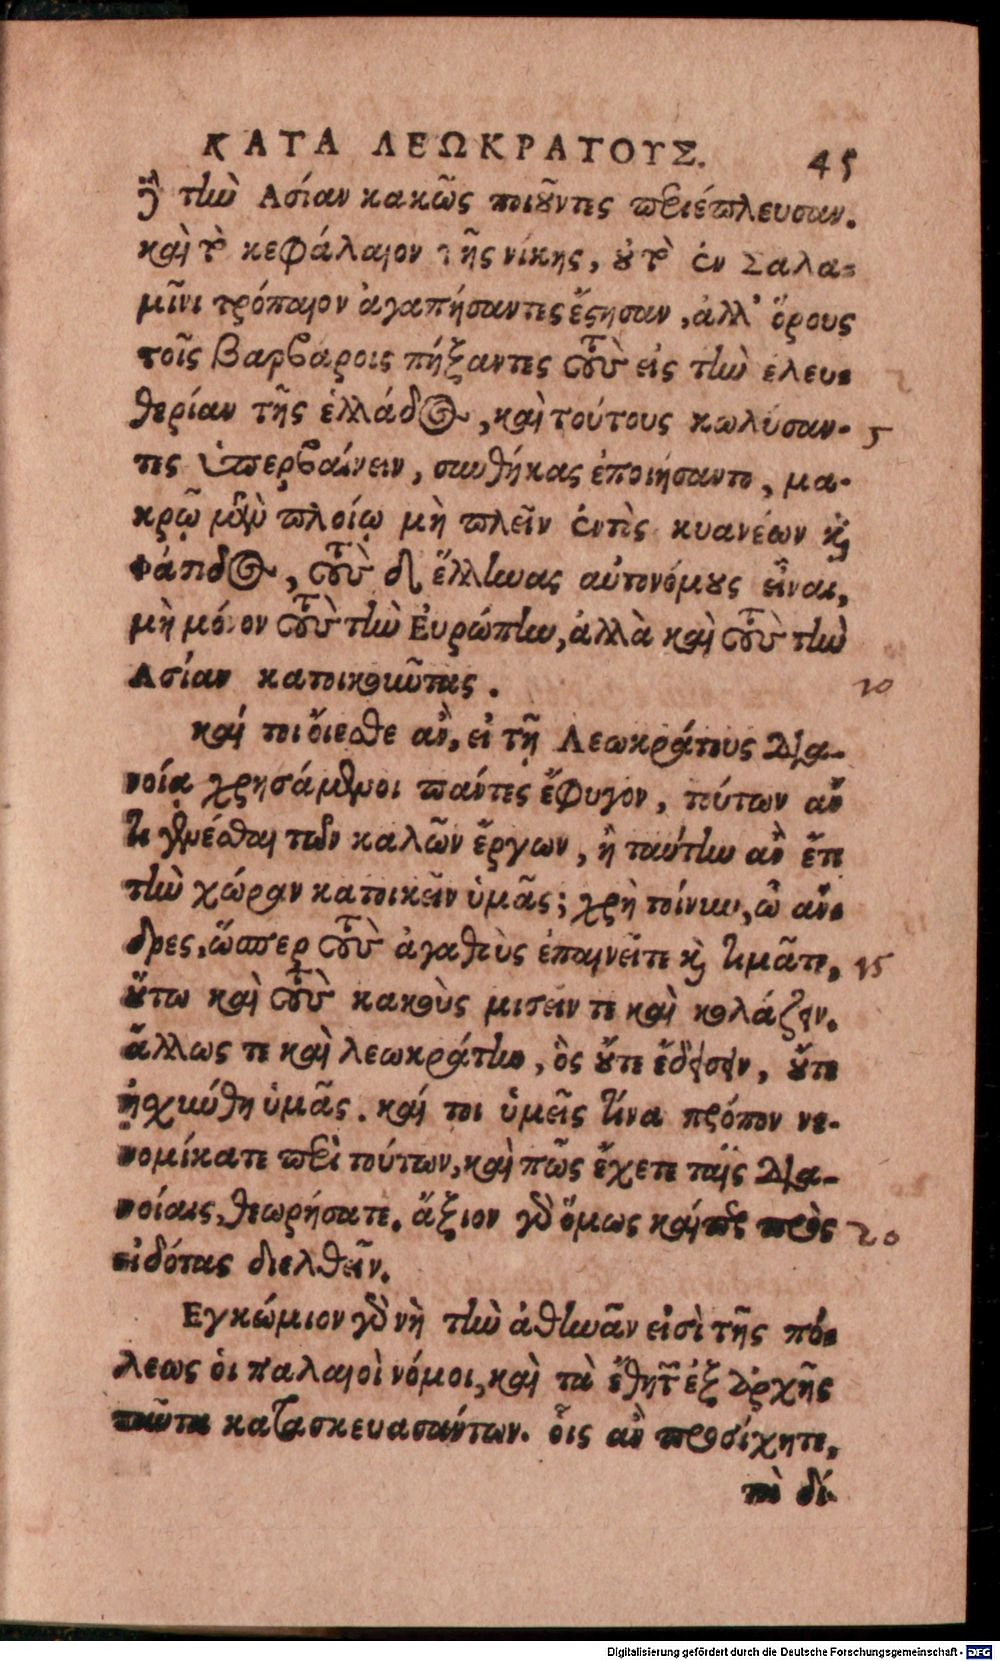 ΚΑΤΑ ΛΕΩΚΡΑΤΟΥΣ. 45
δὲ τὴν Ασίαν κακῶς ποιοῦντες περιέπλευσαν.
καὶ τὸ κεφάλαιον τῆς νίκης, οὐ τὸ ἐν Σαλα-
μῖνι τρόπαιον ἀγαπήσαντες ἔστησαν, ἀλλ' ὅρους
τοῖς βαρβάροις πήξαντες τοὺς εἰς τὴν ἐλευ-
θερίαν τῆς ἑλλάδος, καὶ τούτους κωλύσαν- 5
τες ὑπερβαίνειν, συνθήκας ἐποιήσαντο, μα-
κρῷ μὲν πλοίῳ μὴ πλεῖν ἐντὸς κυανέων καὶ
Φάσιδος, τοὺς δὲ ἕλληνας αὐτονόμους εἶναι,
μὴ μόνον τοὺς τὴν Εὐρώπην, ἀλλὰ καὶ τοὺς τὴν
Ασίαν κατοικοῦντας. 10
καί τοι οἴεσθε ἂν, εἰ τῇ Λεωκράτους δια-
νοίᾳ χρησάμενοι πάντες ἔφυγον, τούτων ἄν
τι γενέσθαι τῶν καλῶν ἔργων, ἢ ταύτην ἂν ἔτι
τὴν χώραν κατοικεῖν ὑμᾶς; χρὴ τοίνυν, ὦ ἄν-
δρες, ὥσπερ τοὺς ἀγαθοὺς ἐπαινεῖτε καὶ τιμᾶτε, 15
οὕτω καὶ τοὺς κακοὺς μισεῖν τε καὶ κολάζειν.
ἄλλως τε καὶ λεωκράτην, ὃς οὔτε ἔδεισεν, οὔτε
ᾐσχύνθη ὑμᾶς. καί τοι ὑμεῖς τίνα τρόπον νε-
νομίκατε περὶ τούτων, καὶ πῶς ἔχετε ταῖς δια-
νοίαις, θεωρήσατε. ἄξιον γὰρ ὅμως καίπερ πρὸς 20
εἰδότας διελθεῖν.
Εγκώμιον γὰρ νὴ τὴν ἀθηνᾶν εἰσὶ τῆς πό-
λεως οἱ παλαιοὶ νόμοι, καὶ τὰ ἔθη τῶν ἐξ ἀρχῆς
ταῦτα κατασκευασάντων. οἷς ἂν προσέχητε,
τὰ δί-
Digitalisierung gefördert durch die Deutsche Forschungsgemeinschaft - DFG